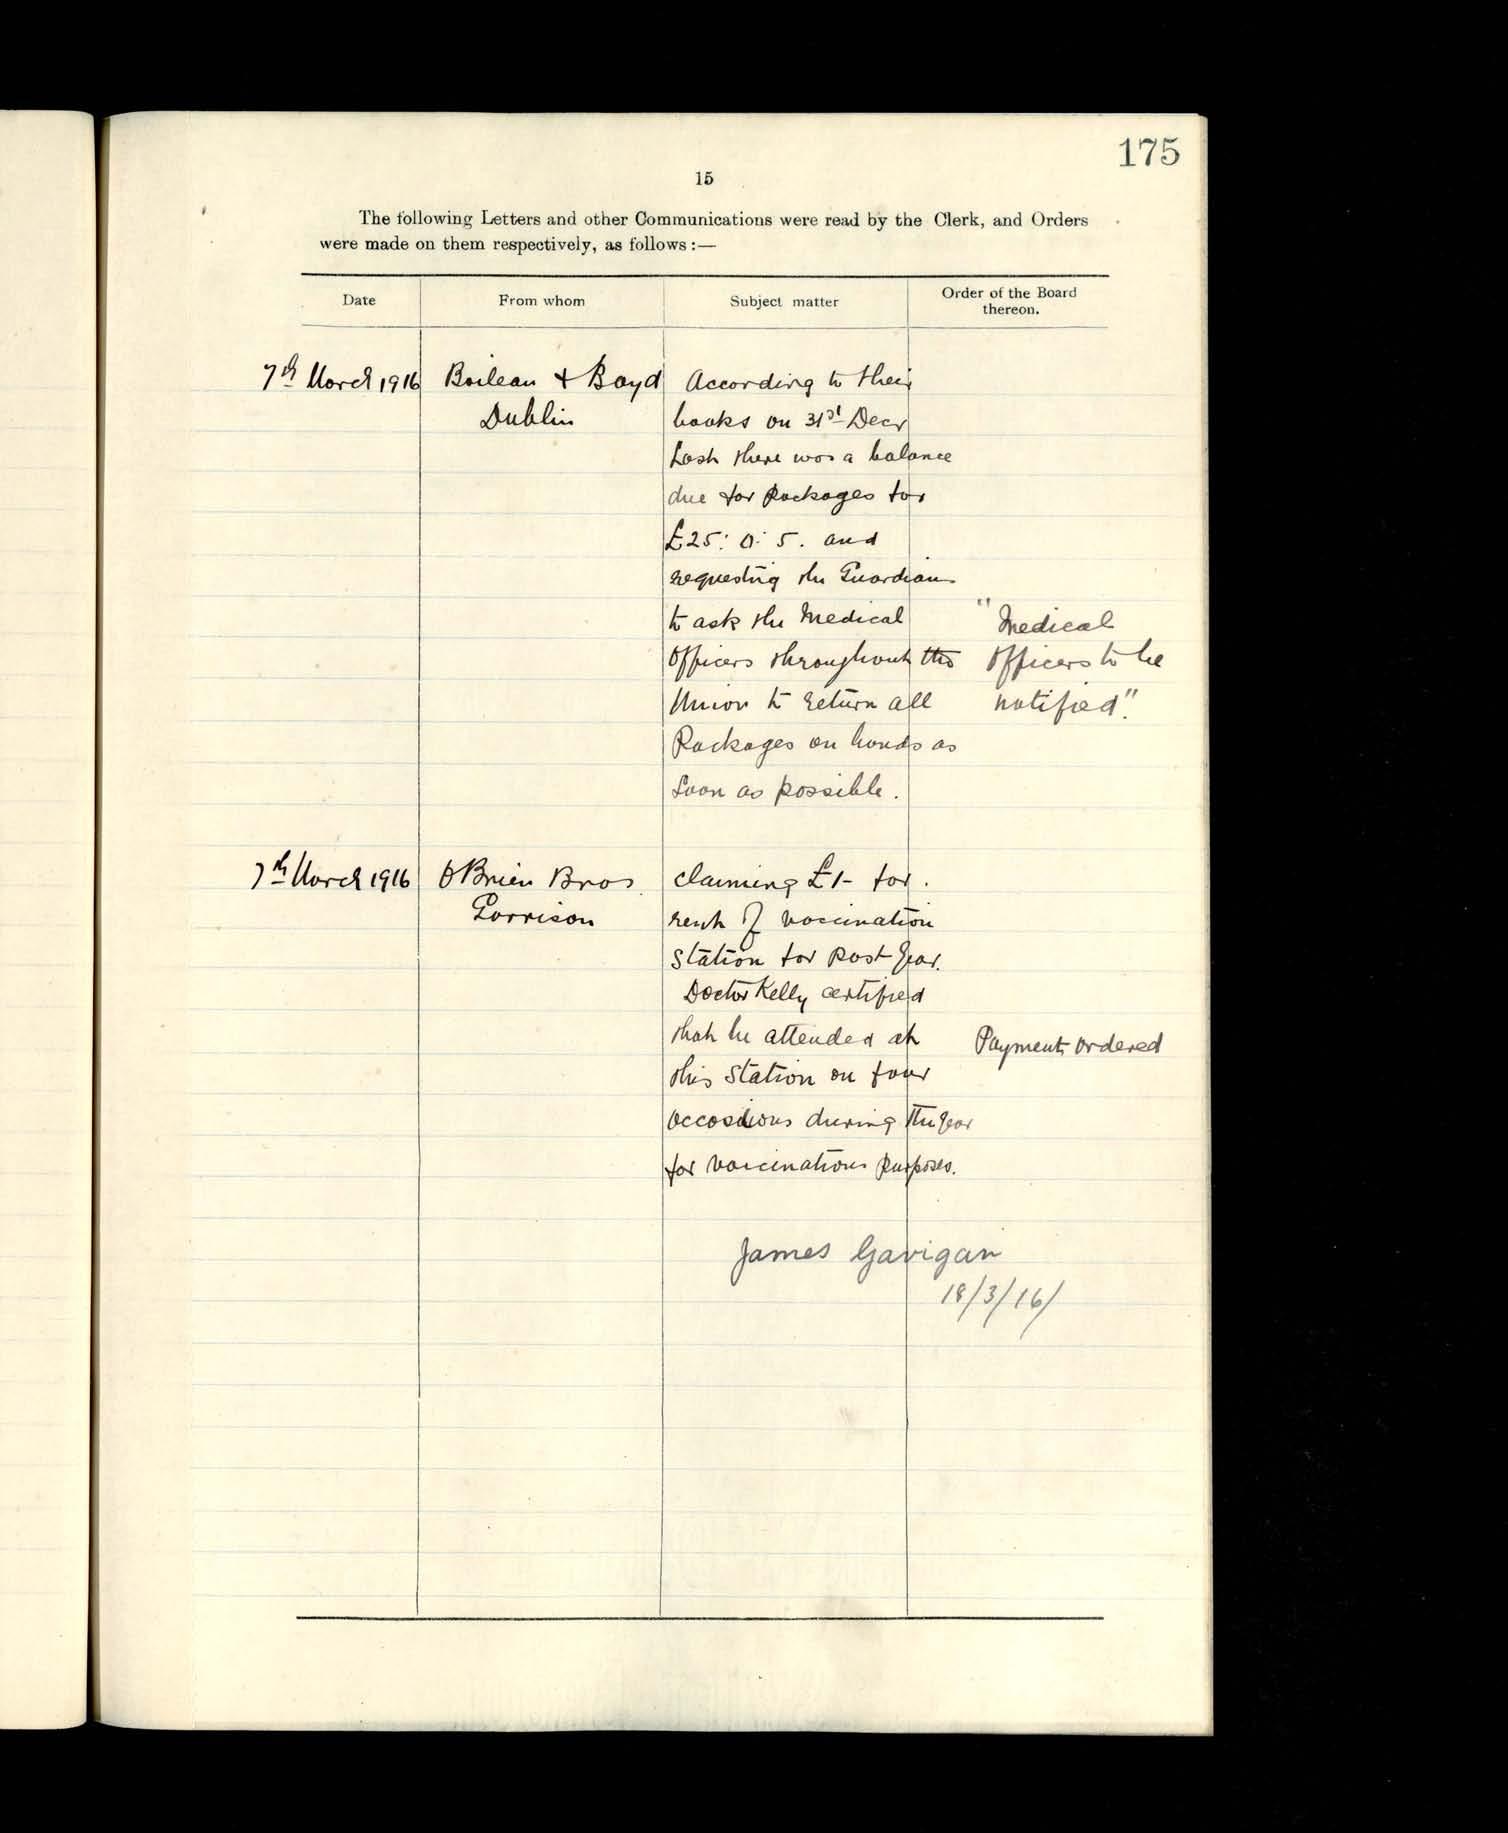 175
15
The following Letters and other Communications were read by the Clerk, and Orders
were made on them respectively, as follows :—
Date From whom Subject matter Order of the Board
thereon.
7th March 1916 Boileau & Boyd According to their
Dublin books on 31st Decr
Last there was a balance
due for Packages for
£25: 0: 5. and
requesting the Guardians
to ask the Medical "Medical
Officers throughout the Officers to be
Union to return all notified".
Packages on hands as
Soon as possible.
7th March 1916 O'Brien Bros. claiming £1- for
Garrison rent of vaccination
Station for past year.
Doctor Kelly certified
that he attended at Payment ordered
this Station on four
occasions during the year
for vaccination purposes.
James Gavigan
18/3/16/